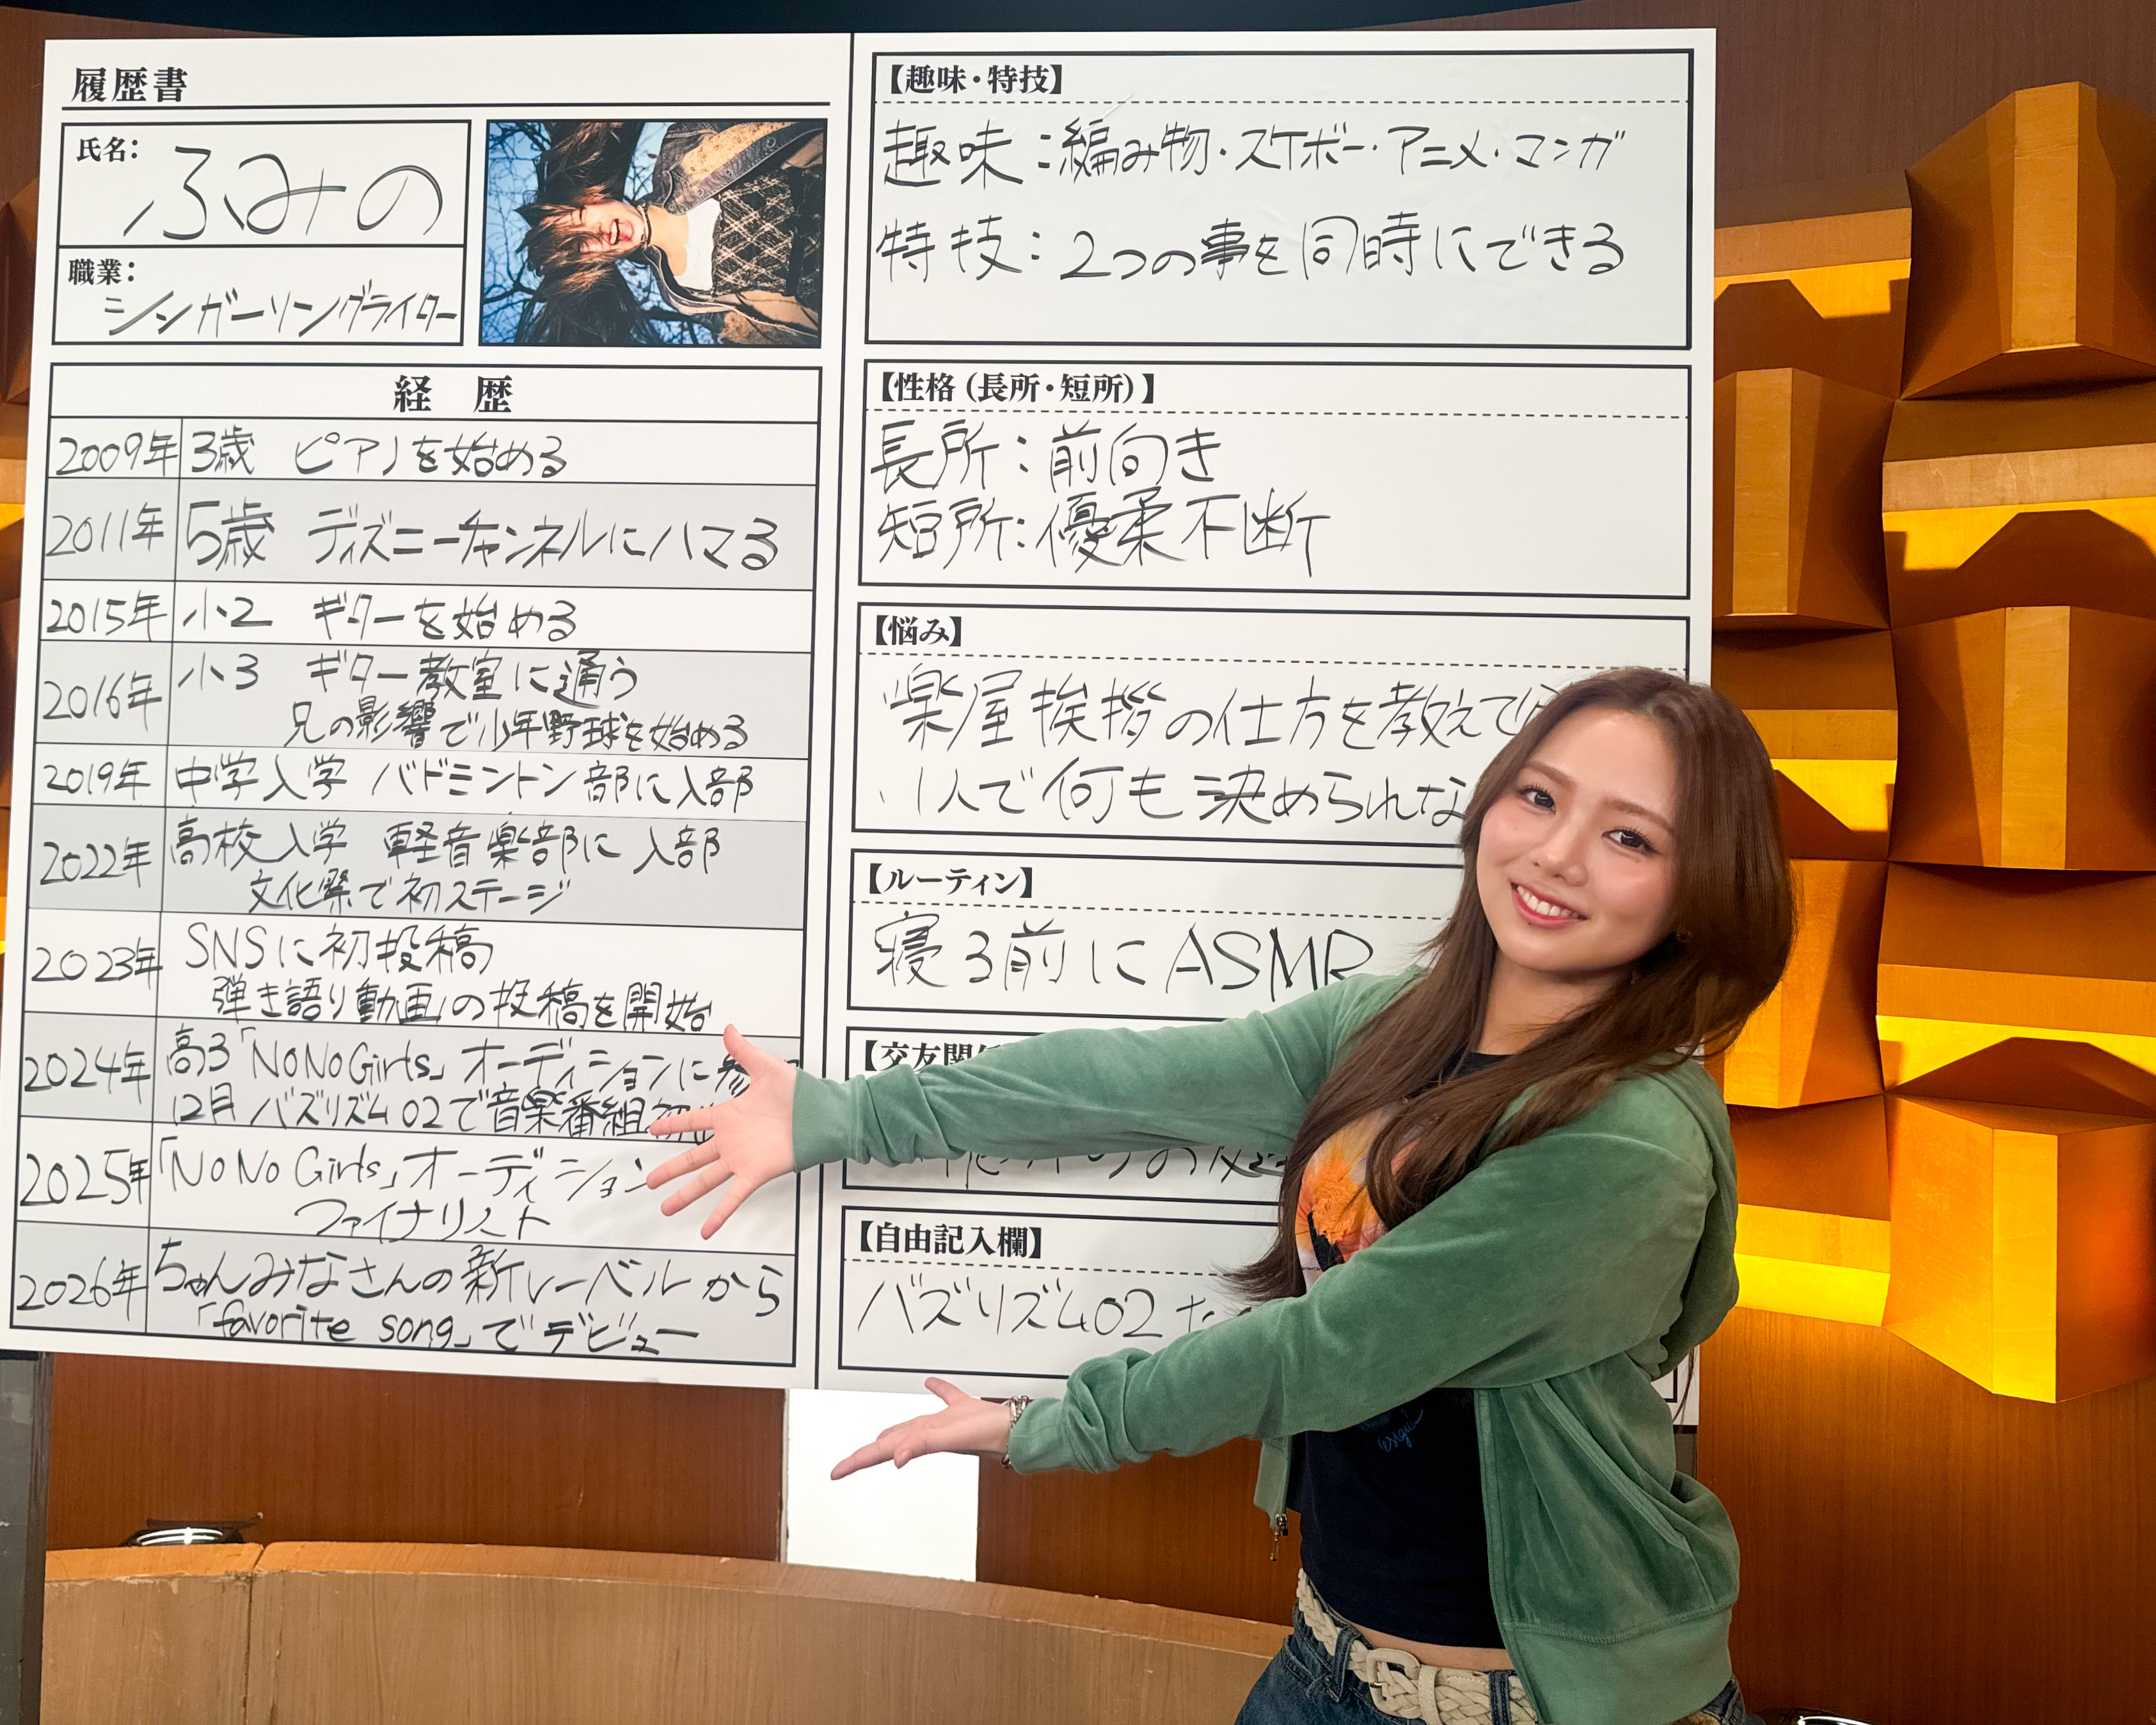 履歴書
氏名:
ふみの
職業:
シンガーソングライター
経 歴
2009年 3歳 ピアノを始める
2011年 5歳 ディズニーチャンネルにハマる
2015年 小2 ギターを始める
2016年 小3 ギター教室に通う
兄の影響で少年野球を始める
2019年 中学入学 バドミントン部に入部
2022年 高校入学 軽音楽部に入部
文化祭で初ステージ
2023年 SNSに初投稿
弾き語り動画の投稿を開始
2024年 高3「NoNoGirls」オーディションに
12月 バズリズム02で音楽番組初
2025年 「NoNo Girls」オーディション
ファイナリスト
2026年 ちゃんみなさんの新レーベルから
「favorite song」でデビュー
【趣味・特技】
趣味:編み物・スケボー・アニメ・マンガ
特技:2つの事を同時にできる
【性格(長所・短所)】
長所:前向き
短所:優柔不断
【悩み】
・楽屋挨拶の仕方を教えて
・1人で何も決められな
【ルーティン】
寝る前にASMR
【交友関係
【自由記入欄】
バズリズム02